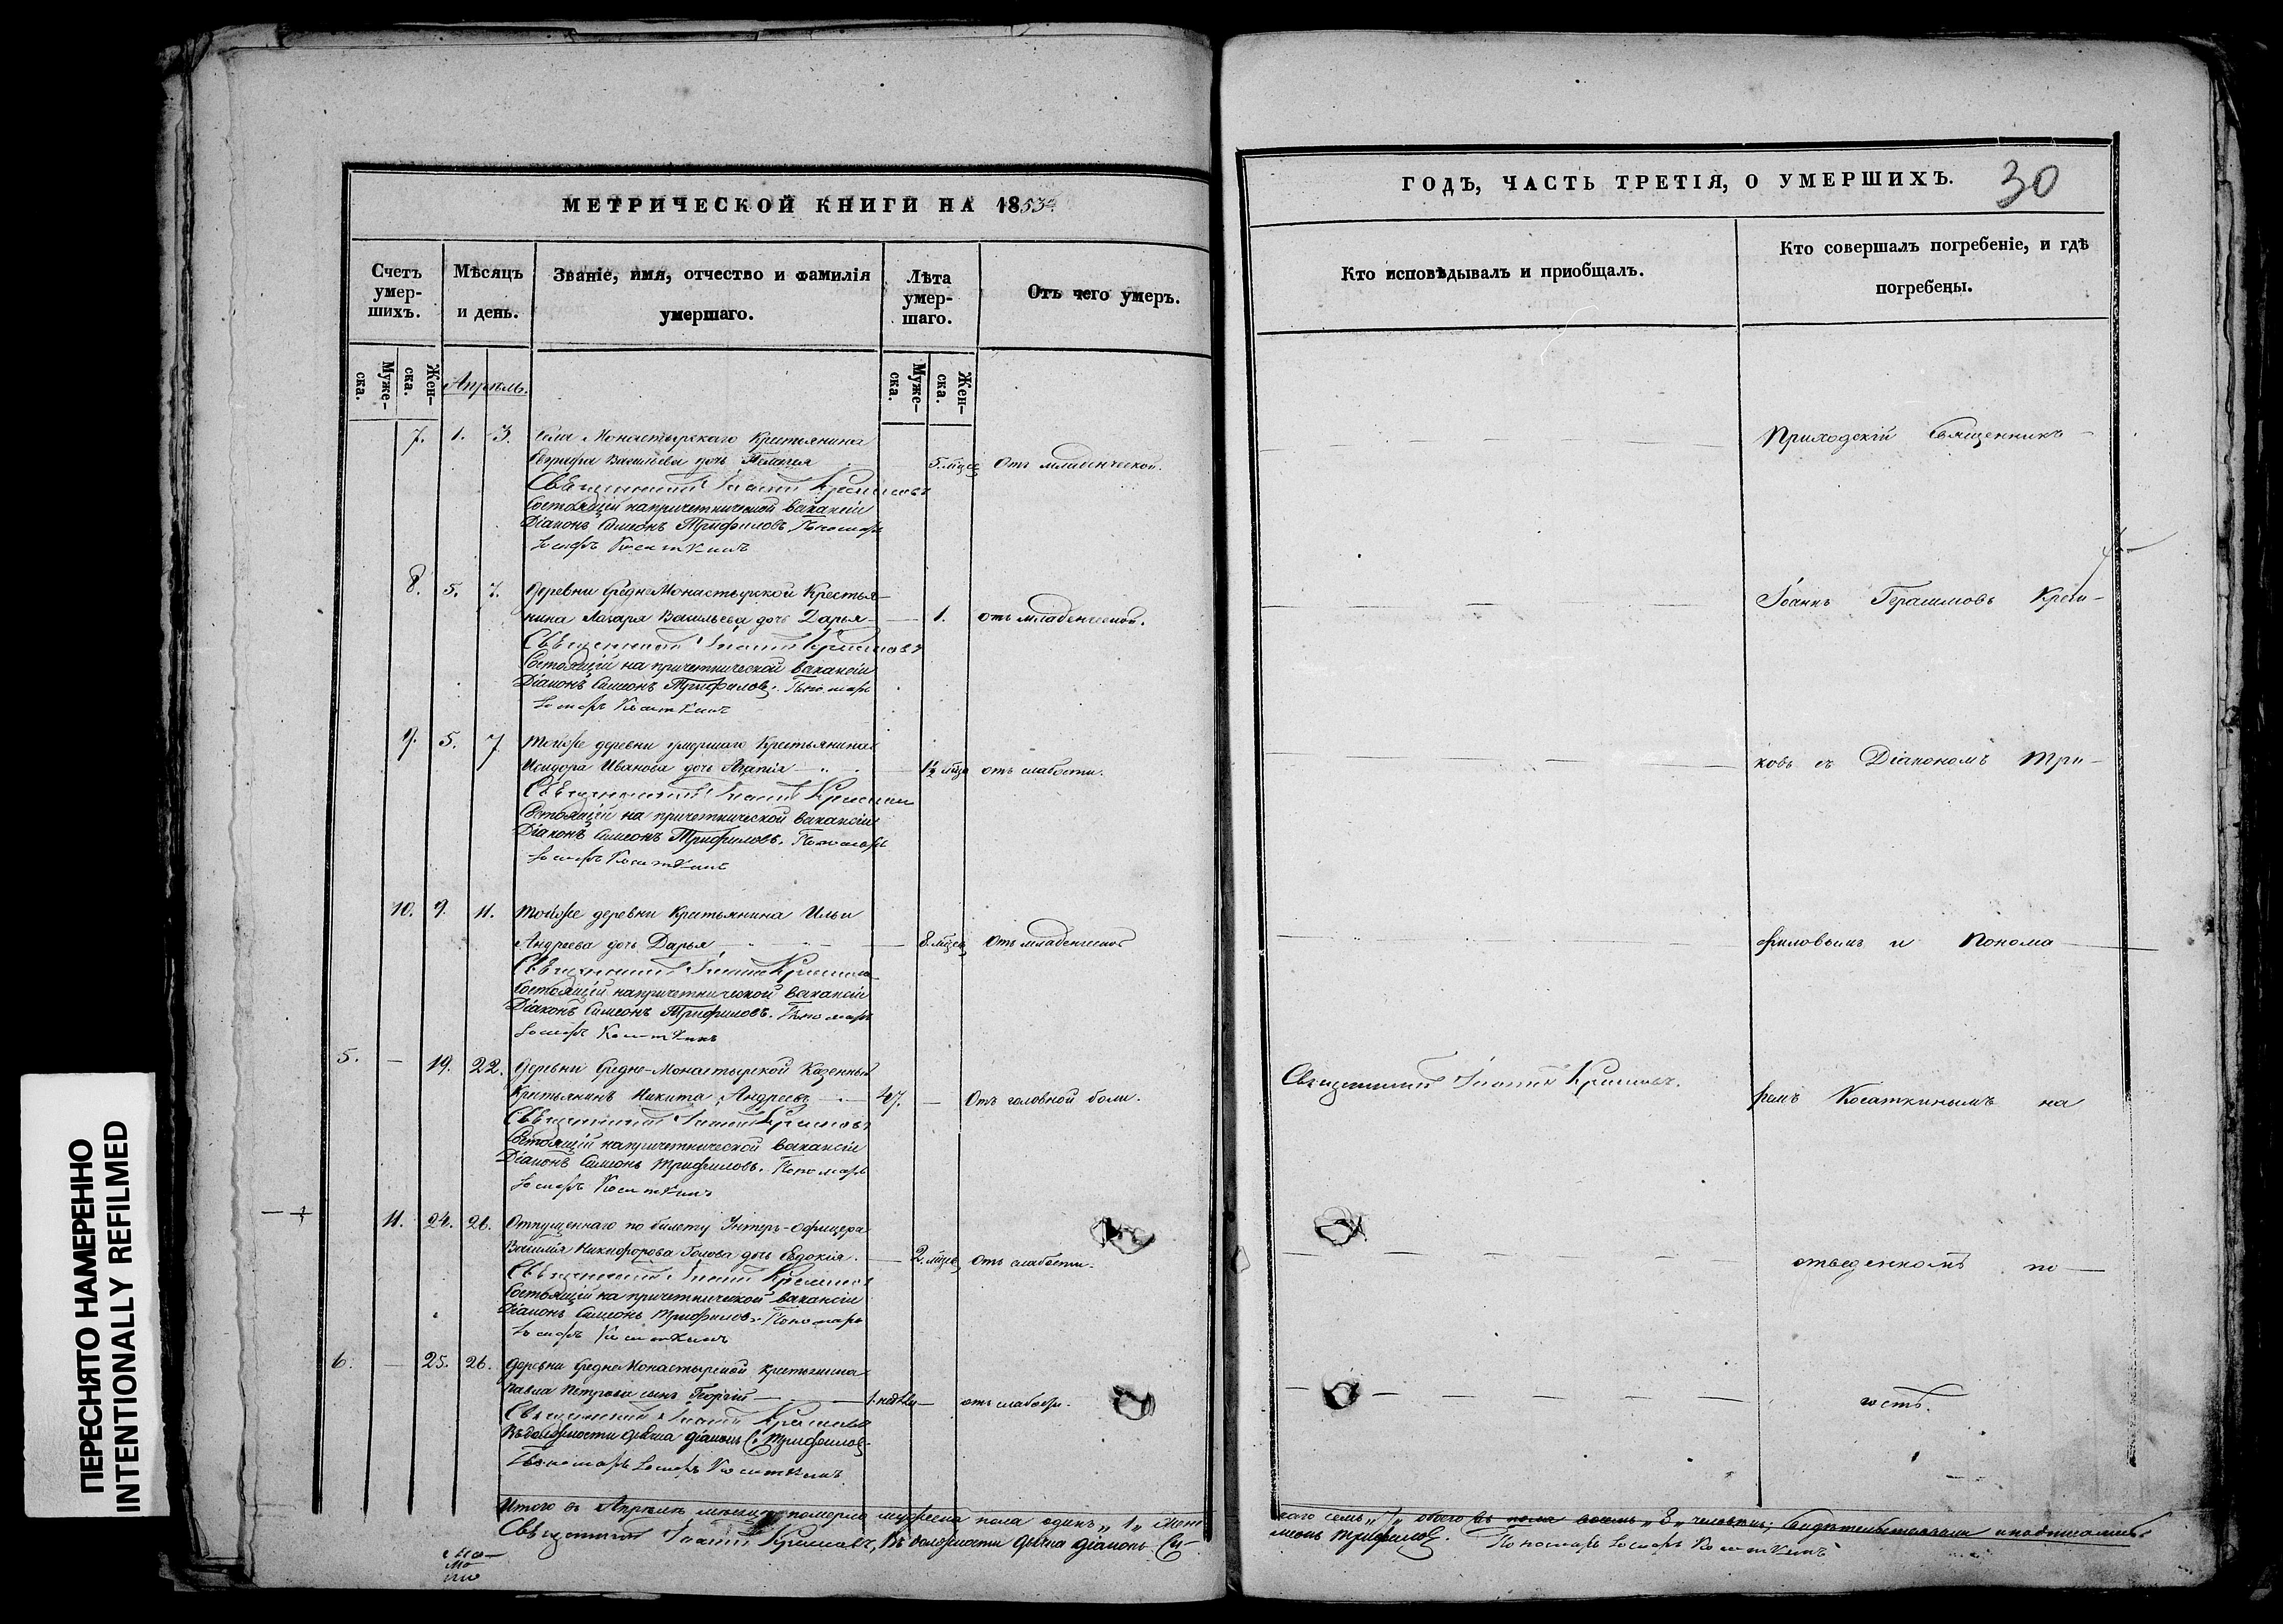 МЕТРИЧЕСКОЙ КНИГИ НА 1853
Счетъ умер-шихъ.
Мѣсяцъ и день.
Званіе, имя, отчество и фамилія умершаго.
Лѣта умер-шаго.
Отъ чего умеръ.
Муже-ска.
Жен-ска.
Апрѣль.
Муже-ска.
Жен-ска.
7. 1. 3. Села Монастырскаго Крестьянина
Васильева дочь Пелагия 5. мѣсец Отъ младенческой.
Священникъ Іоаннъ
Состоящій на причетнической вакансіи
Діаконъ Симеонъ Трифиловъ. Пономарь
Іосифъ Косаткинъ
8. 5. 7. Деревни СреднеМонастырской Крестья-
нина Лазаря Васильева дочь Дарья 1. отъ младенческой.
Священникъ Іоаннъ
Состоящій на причетнической вакансіи
Діаконъ Симеонъ Трифиловъ. Пономарь
Іосифъ Косаткинъ
9. 5. 7 Тойже деревни умершаго Крестьянина
Исидора Иванова дочь Агапія 1½ мѣца отъ слабости.
Священникъ Іоаннъ
Состоящій на причетнической вакансіи
Діаконъ Симеонъ Трифиловъ. Пономарь
Іосифъ Косаткинъ
10. 9. 11. Тойже деревни Крестьянина Ильи
Андреева дочь Дарья 8. мѣсец Отъ младенческой
Священникъ Іоаннъ
Состоящій на причетнической вакансіи
Діаконъ Симеонъ Трифиловъ. Пономарь
Іосифъ Косаткинъ
5. — 19. 22. Деревни Средне-Монастырской Казенный
Крестьянинъ Никита Андреевъ 47. — Отъ головной боли.
Священникъ Іоаннъ
Состоящій на причетнической вакансіи
Діаконъ Симеонъ Трифиловъ. Пономарь
Іосифъ Косаткинъ
11. 24. 26. Отпущеннаго по билету Унтеръ-Офицера
Василія Никифорова дочь Евдокія. 2. мѣсец Отъ слабости.
Священникъ Іоаннъ
Состоящій на причетнической вакансіи
Діаконъ Симеонъ Трифиловъ. Пономарь
Іосифъ Косаткинъ
6. — 25. 26. Деревни СреднеМонастырской Крестьянина
Павла Петрова сынъ Георгій отъ слабости.
Священникъ Іоаннъ
Въ должности дьячка діаконъ С. Трифиловъ
Пономарь Іосифъ Косаткинъ
Итого въ Апрѣлѣ мѣсяцѣ померло мужеска пола одинъ „1„ Жен
Священникъ Іоаннъ Въ должности дьячка діаконъ Си-
ГОДЪ, ЧАСТЬ ТРЕТІЯ, О УМЕРШИХЪ. 30
Кто исповѣдывалъ и приобщалъ.
Кто совершалъ погребеніе, и гдѣ погребены.
Приходскій Священникъ
Іоаннъ Герасимовъ
ковъ съ Діакономъ Три-
филовымъ и Понома
Священникъ Іоаннъ
ремъ Косаткинымъ на
отведенномъ по-
гостѣ.
скаго семь „7„ обаго пола восемь „8„ человѣкъ;
меонъ Трифиловъ. Пономарь Іосифъ Косаткинъ
ПЕРЕСНЯТО НАМЕРЕННО
INTENTIONALLY REFILMED